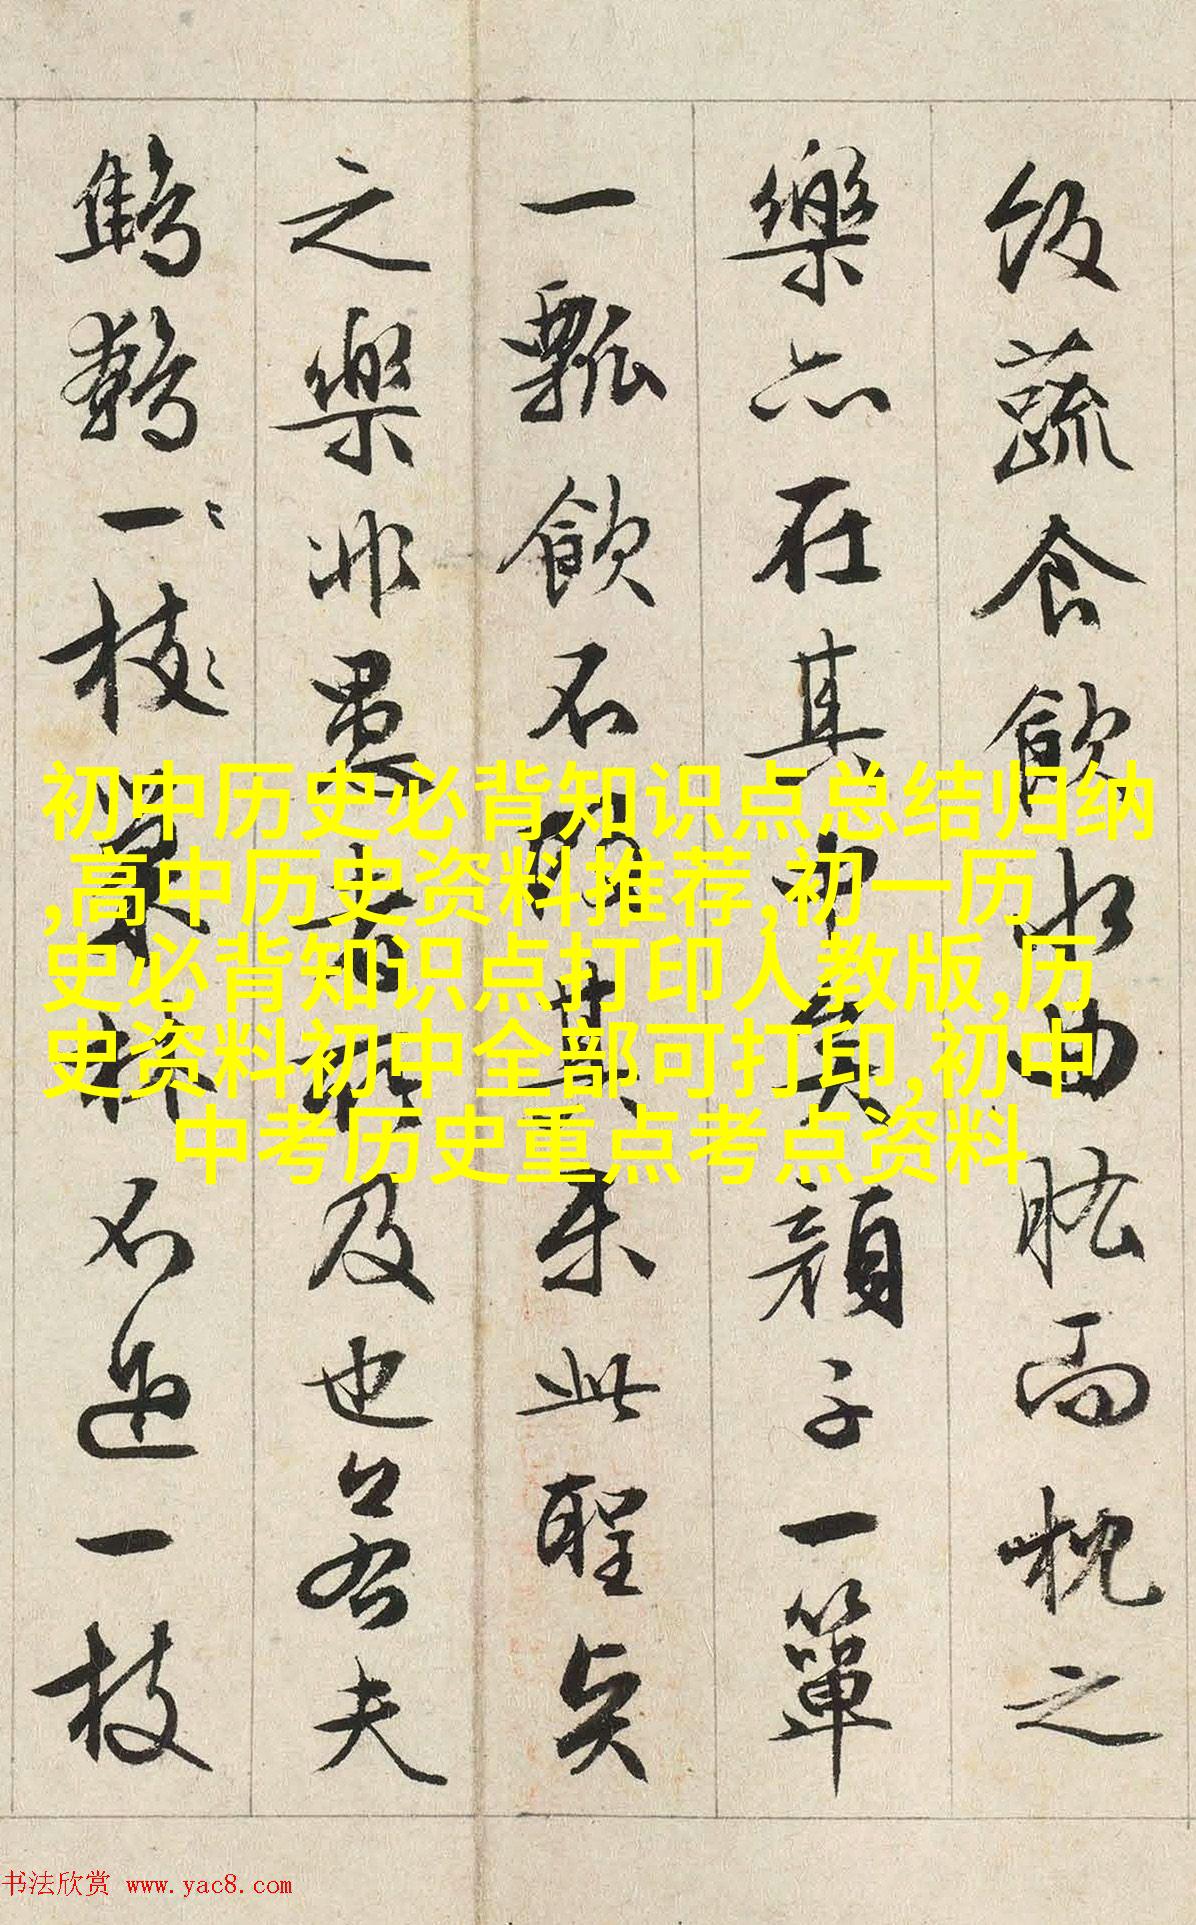 飯蔬食飲水曲肱而枕之
樂亦在其中矣顏子一簞
一瓢飲不改其樂此聖賢
之樂非愚者所及也若夫
鷦鷯一〻枝〻巢林不過一枝
初中历史必背知识点总结归纳
,高中历史资料推荐,初一历
史必背知识点打印人教版,历
史资料初中全部可打印,初中
中考历史重点考点资料
书法欣赏 www.yac8.com